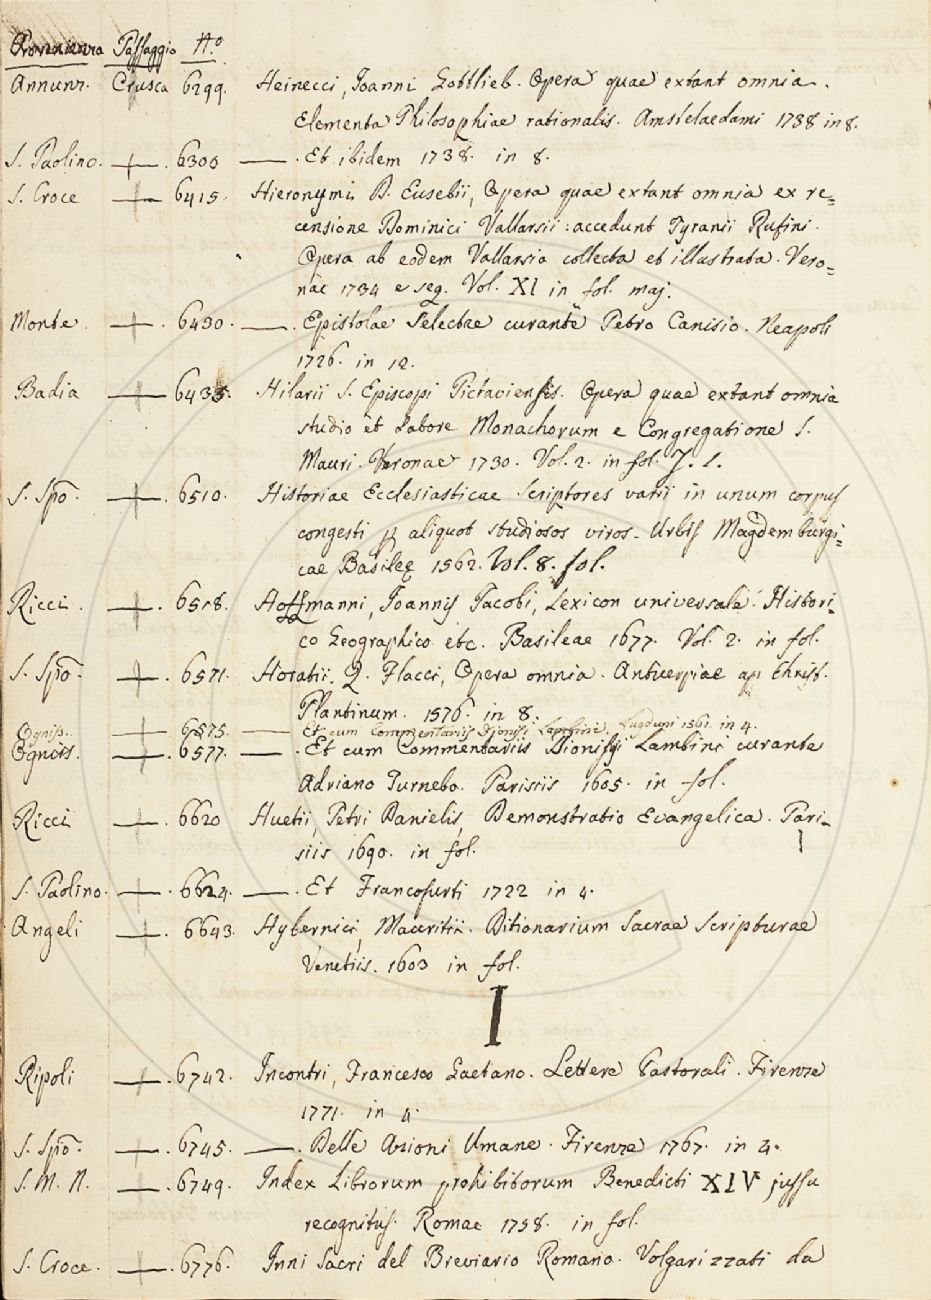 Provenienza Passaggio N.o
Annunz. Crusca 6299. Heinecci, Joanni Gottlieb. Opera quae extant omnia.
Elementa Philosophiae rationalis. Amstelaedami 1738 in 8.
S. Paolino. —. 6300 —. Et ibidem 1738. in 8.
S. Croce — 6415. Hieronymi D. Eusebii, Opera quae extant omnia ex re=
censione Dominici Vallarsii: accedunt Tyranii Rufini.
Opera ab eodem Vallarsio collecta et illustrata. Vero=
nae 1734 e seg. Vol. XI in fol. maj.
Monte. —. 6430. —. Epistolae Selectae curante Petro Canisio. Neapoli
1726. in 12.
Badia — 6435. Hilarii S. Episcopi Pictaviensis. Opera quae extant omnia
studio et Labore Monachorum e Congregatione S.
Mauri. Veronae 1730. Vol. 2. in fol.
S. Spo. —. 6510. Historiae Ecclesiasticae Scriptores varii in unum corpus
congesti p aliquot studiosos viros. Urbis Magdemburgi=
cae Basileę 1562. Vol. 8. fol.
Ricci. —. 6518. Hoffmanni, Joannis Jacobi, Lexicon universale. Histori-
co Geographico etc. Basileae 1677. Vol. 2. in fol.
S. Spo. —. 6571. Horatii. Q. Flacci, Opera omnia. Antuerpiae ap Christ.
Plantinum. 1576. in 8.
Ogniss. —. 6575. — Et cum Commentariis Dionisi Lambini, Lugduni 1561. in 4.
Ogniss. —. 6577. —. Et cum Commentariis Dionisii Lambini curante
Adriano Turnebo. Parisiis 1605. in fol.
Ricci — 6620 Huetii, Petri Danielis, Demonstratio Evangelica. Pari-
siis 1690. in fol.
S. Paolino. —. 6624. —. Et Francofurti 1722 in 4.
Angeli —. 6643. Hybernici, Mauritii. Ditionarium Sacrae Scripturae
Venetiis. 1603 in fol.
I
Ripoli —. 6742. Incontri, Francesco Gaetano. Lettere Pastorali. Firenze
1771. in 4.
S. Spo. —. 6745. —. Delle Azioni Umane. Firenze 1767. in 4.
S. M. N. —. 6749. Index Librorum prohibitorum Benedicti XIV jussu
recognitus. Romae 1758. in fol.
S. Croce. —. 6776. Inni Sacri del Breviario Romano. Volgarizzati da